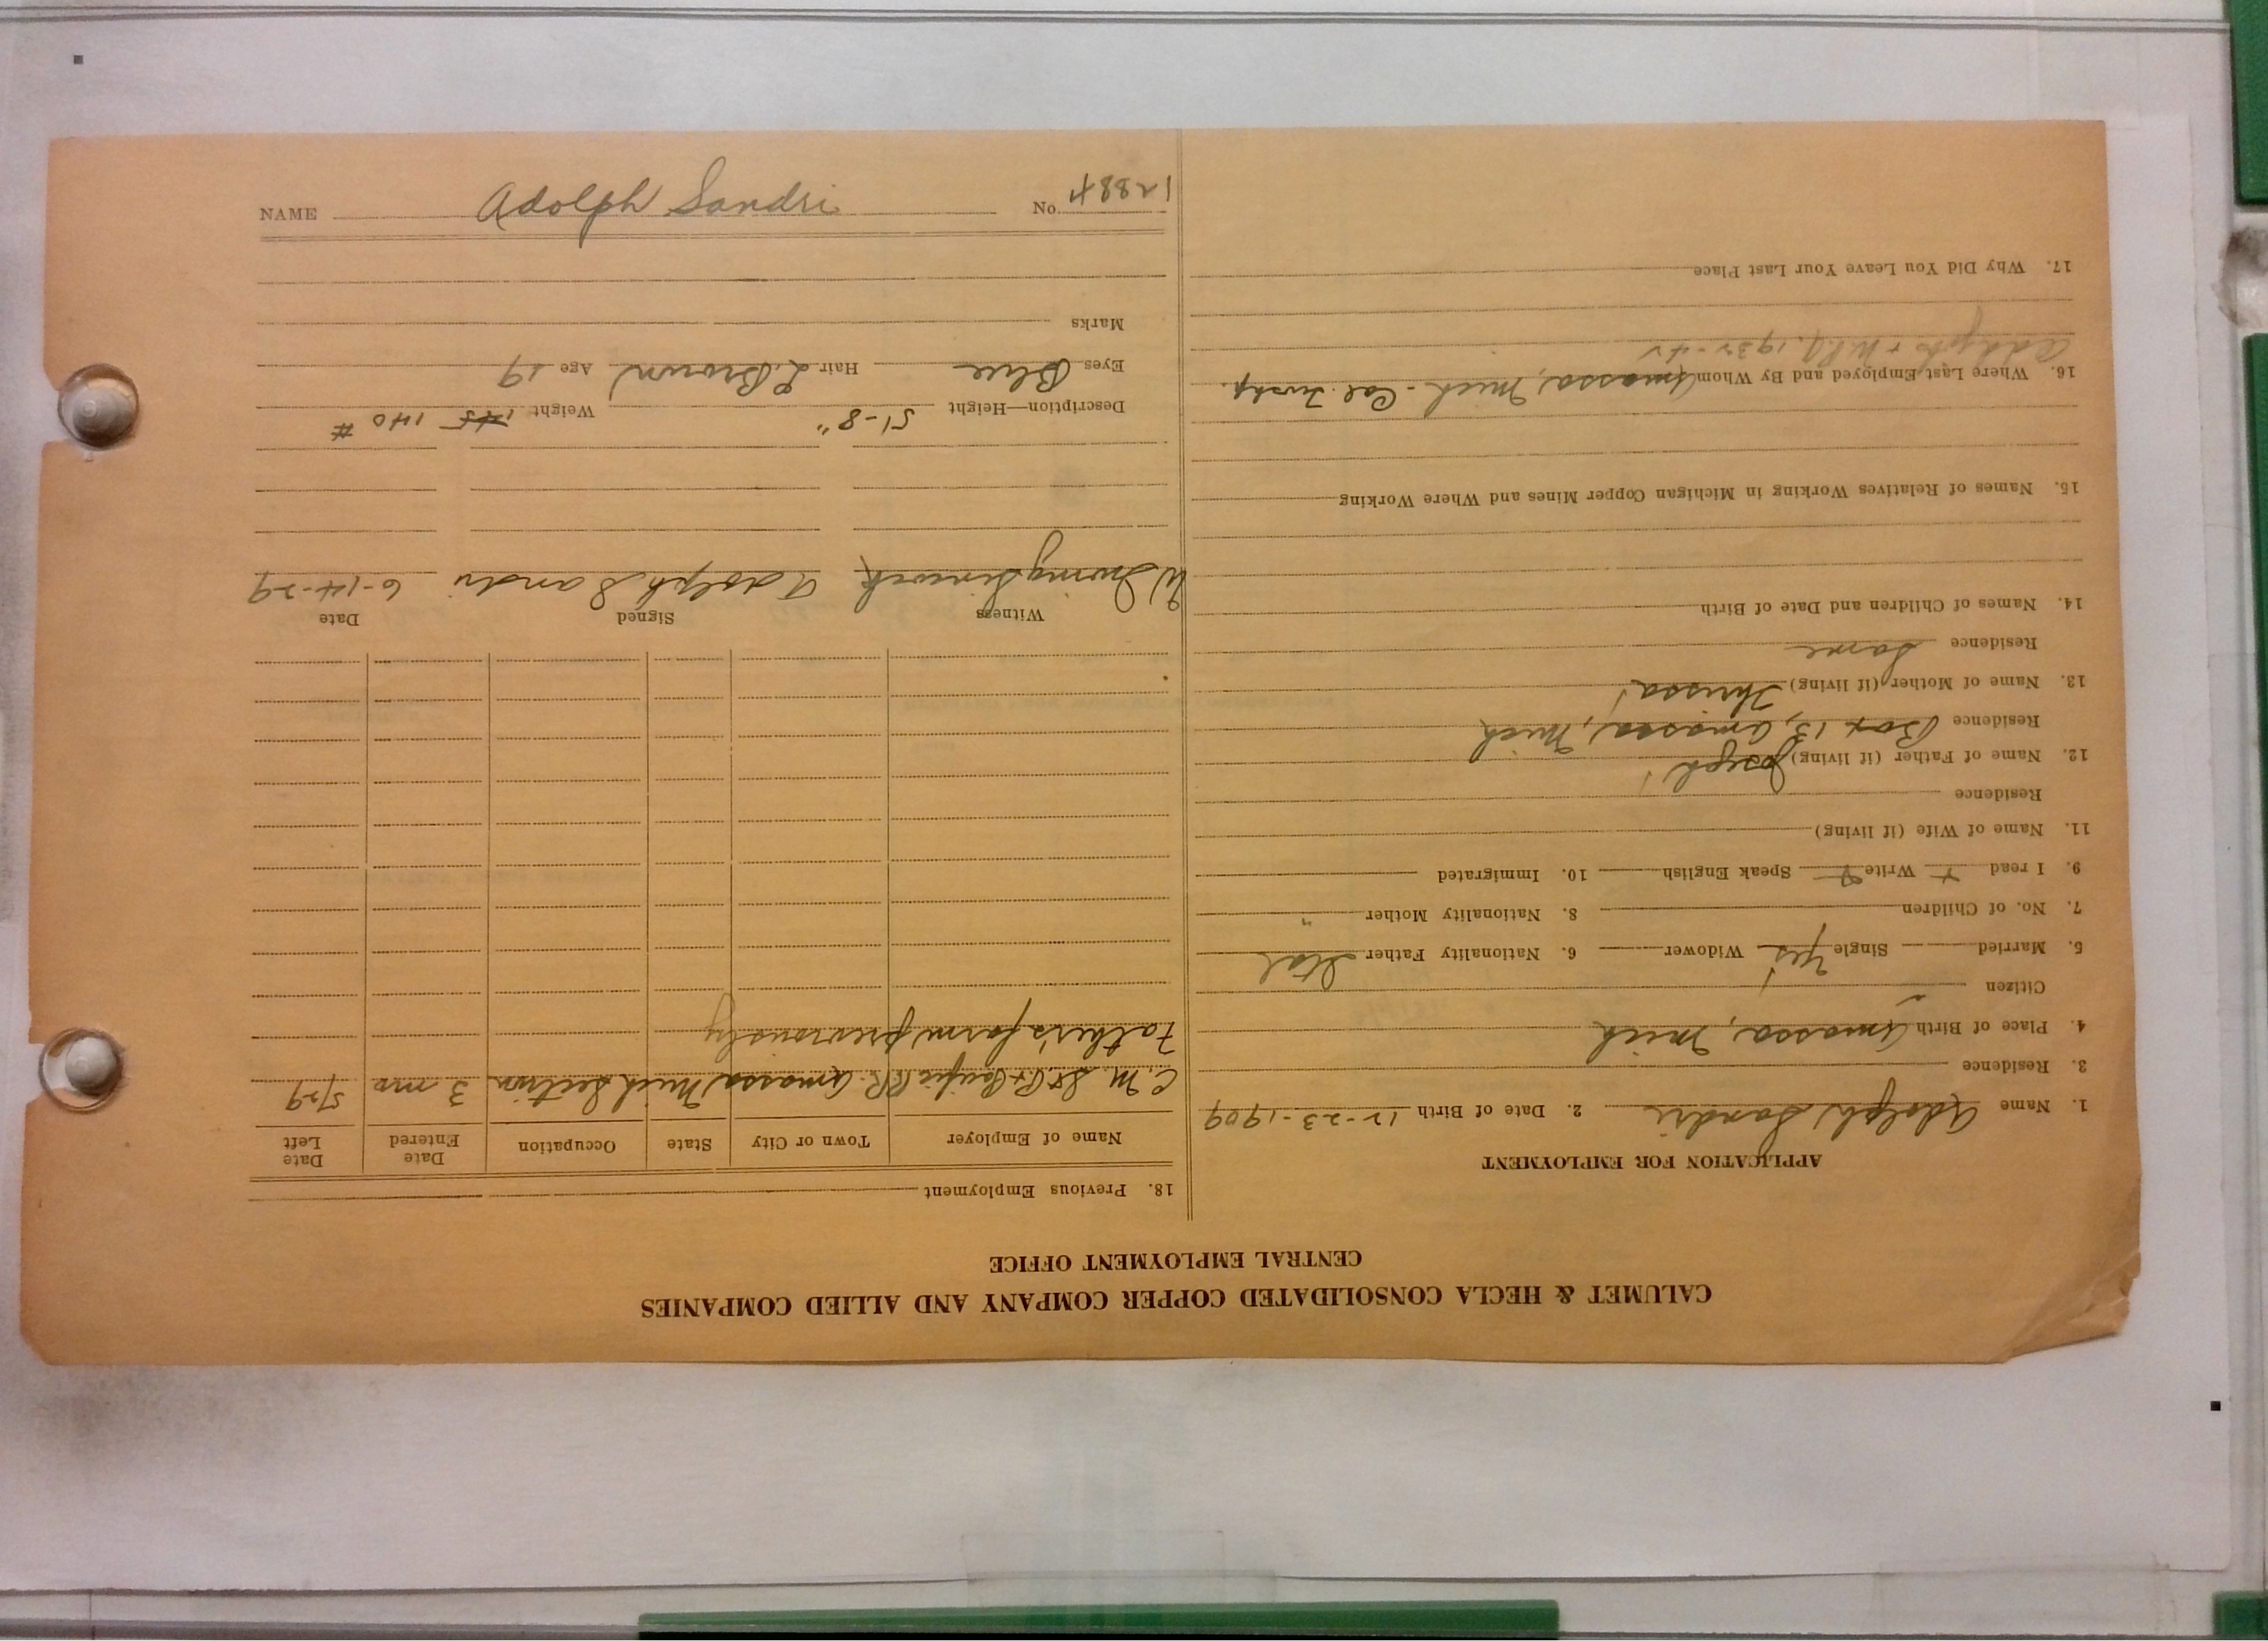 CALUMET & HECLA CONSOLIDATED COPPER COMPANY AND ALLIED COMPANIES
CENTRAL EMPLOYMENT OFFICE
APPLICATION FOR EMPLOYMENT
1. Name Adolph Sandri 2. Date of Birth 12-23-1909
3. Residence
4. Place of Birth Amassa, Mich
Citizen
5. Married Single Yes Widower 6. Nationality Father Ital
7. No. of Children 8. Nationality Mother "
9. I read Write Speak English 10. Immigrated
11. Name of Wife (if living)
Residence
12. Name of Father (if living) Joseph
Residence Box 13, Amassa, Mich
13. Name of Mother (if living)
Residence Same
14. Names of Children and Date of Birth
15. Names of Relatives Working in Michigan Copper Mines and Where Working
16. Where Last Employed and By Whom Amassa, Mich - Cal.
17. Why Did You Leave Your Last Place
18. Previous Employment
Name of Employer Town or City State Occupation Date Entered Date Left
C. M. St. P. & Pacific RR. Amassa Mich Section 3 mo 5/29
Father's farm previously
Witness Signed Date
Adolph Sandri 6-14-29
Description—Height 5'-8" Weight 145 140 #
Eyes Blue Hair L. Brown Age 19
Marks
NAME Adolph Sandri No. 12884